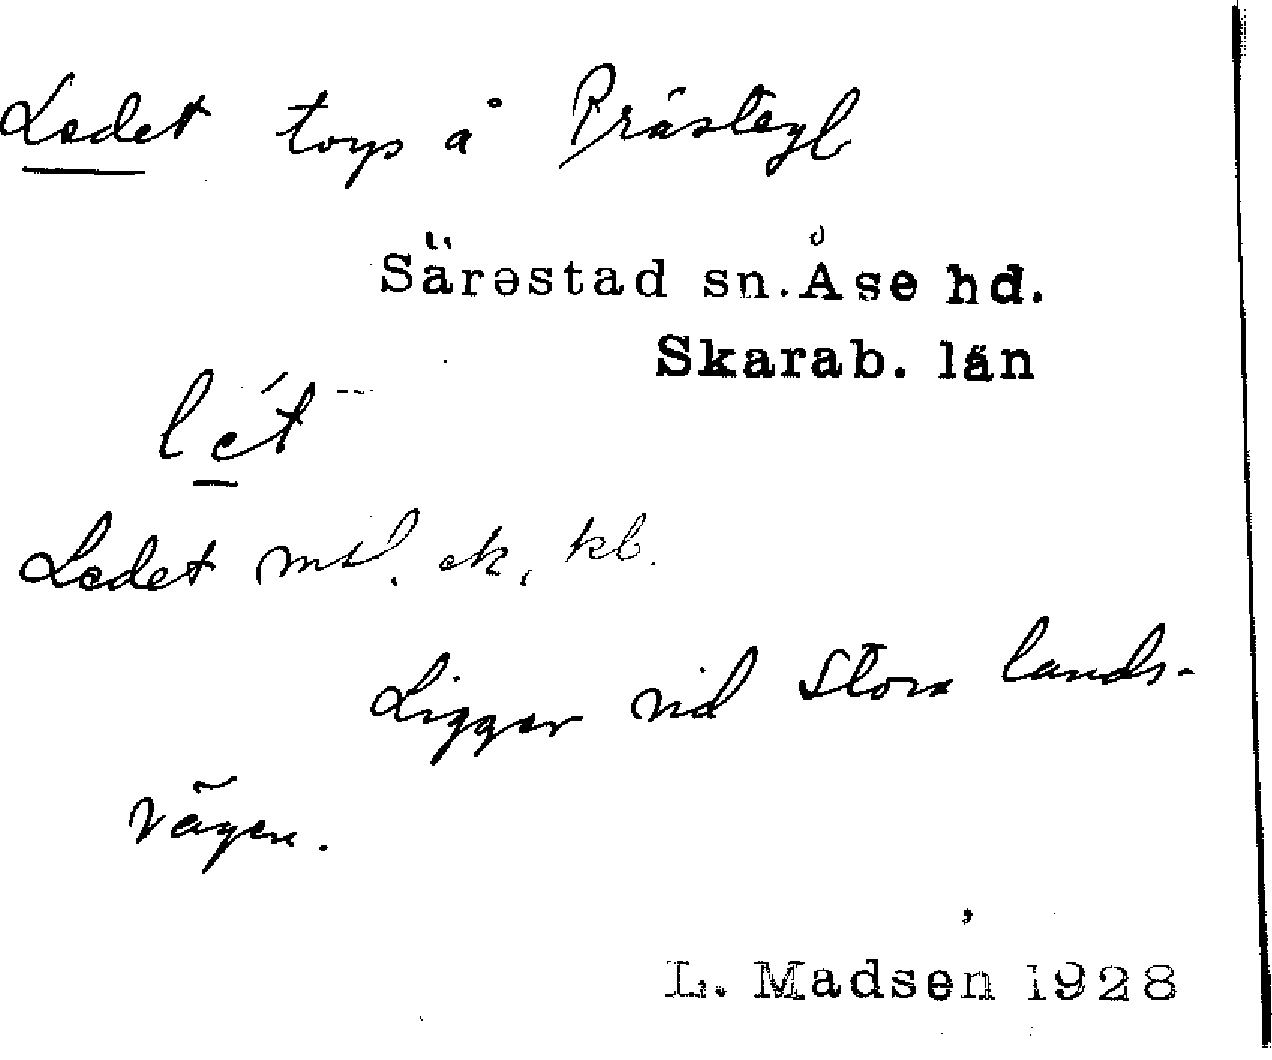 Ledet torp å Prästegb
Särestad sn. Åse hd.
Skarab. län
lét
Ledet mtl. ek, kb.
Ligger vid Stora lands-
vägen.
L. Madsen 1928